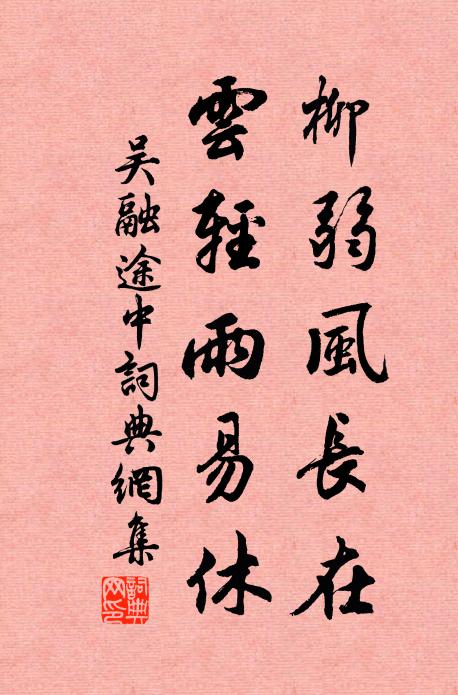 柳弱風長在
雲輕雨易休
吴融途中詞典網集
詞典
网印